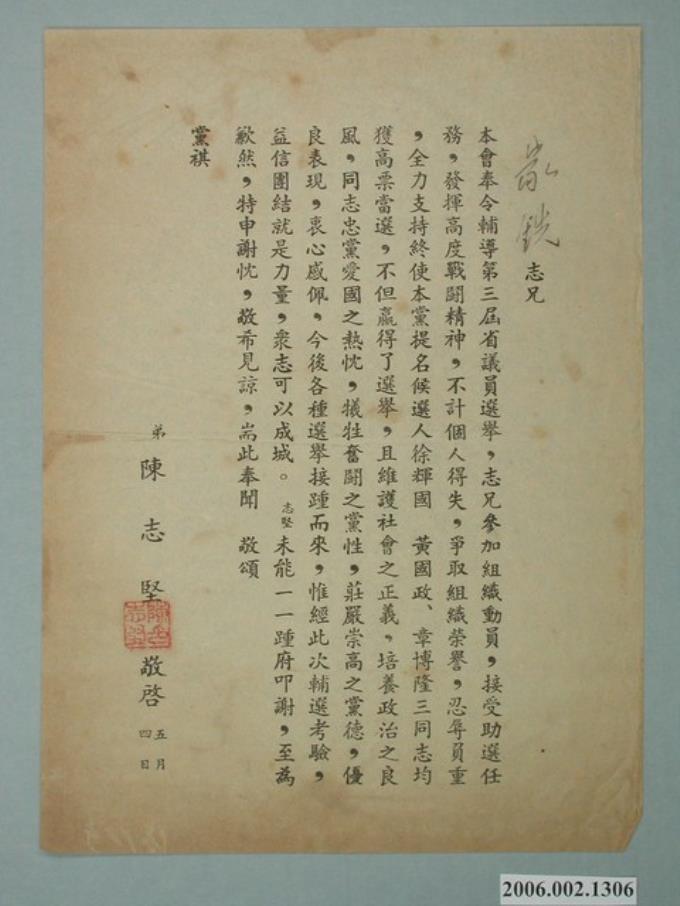 志兄
本會奉令輔導第三屆省議員選舉，志兄參加組織動員，接受助選任
務，發揮高度戰鬪精神，不計個人得失，爭取組織榮譽，忍辱負重
，全力支持終使本黨提名候選人徐輝國　黃國政、章博隆三同志均
獲高票當選，不但贏得了選舉，且維護社會之正義，培養政治之良
風，同志忠黨愛國之熱忱，犧牲奮鬪之黨性，莊嚴崇高之黨德，優
良表現，衷心感佩，今後各種選舉接踵而來，惟經此次輔選考驗，
益信團結就是力量，衆志可以成城。志堅未能一一踵府叩謝，至為
歉然，特申謝忱，敬希見諒，耑此奉聞　敬頌
黨祺
弟　陳志堅　敬啓　五月四日
陳志堅
2006.002.1306